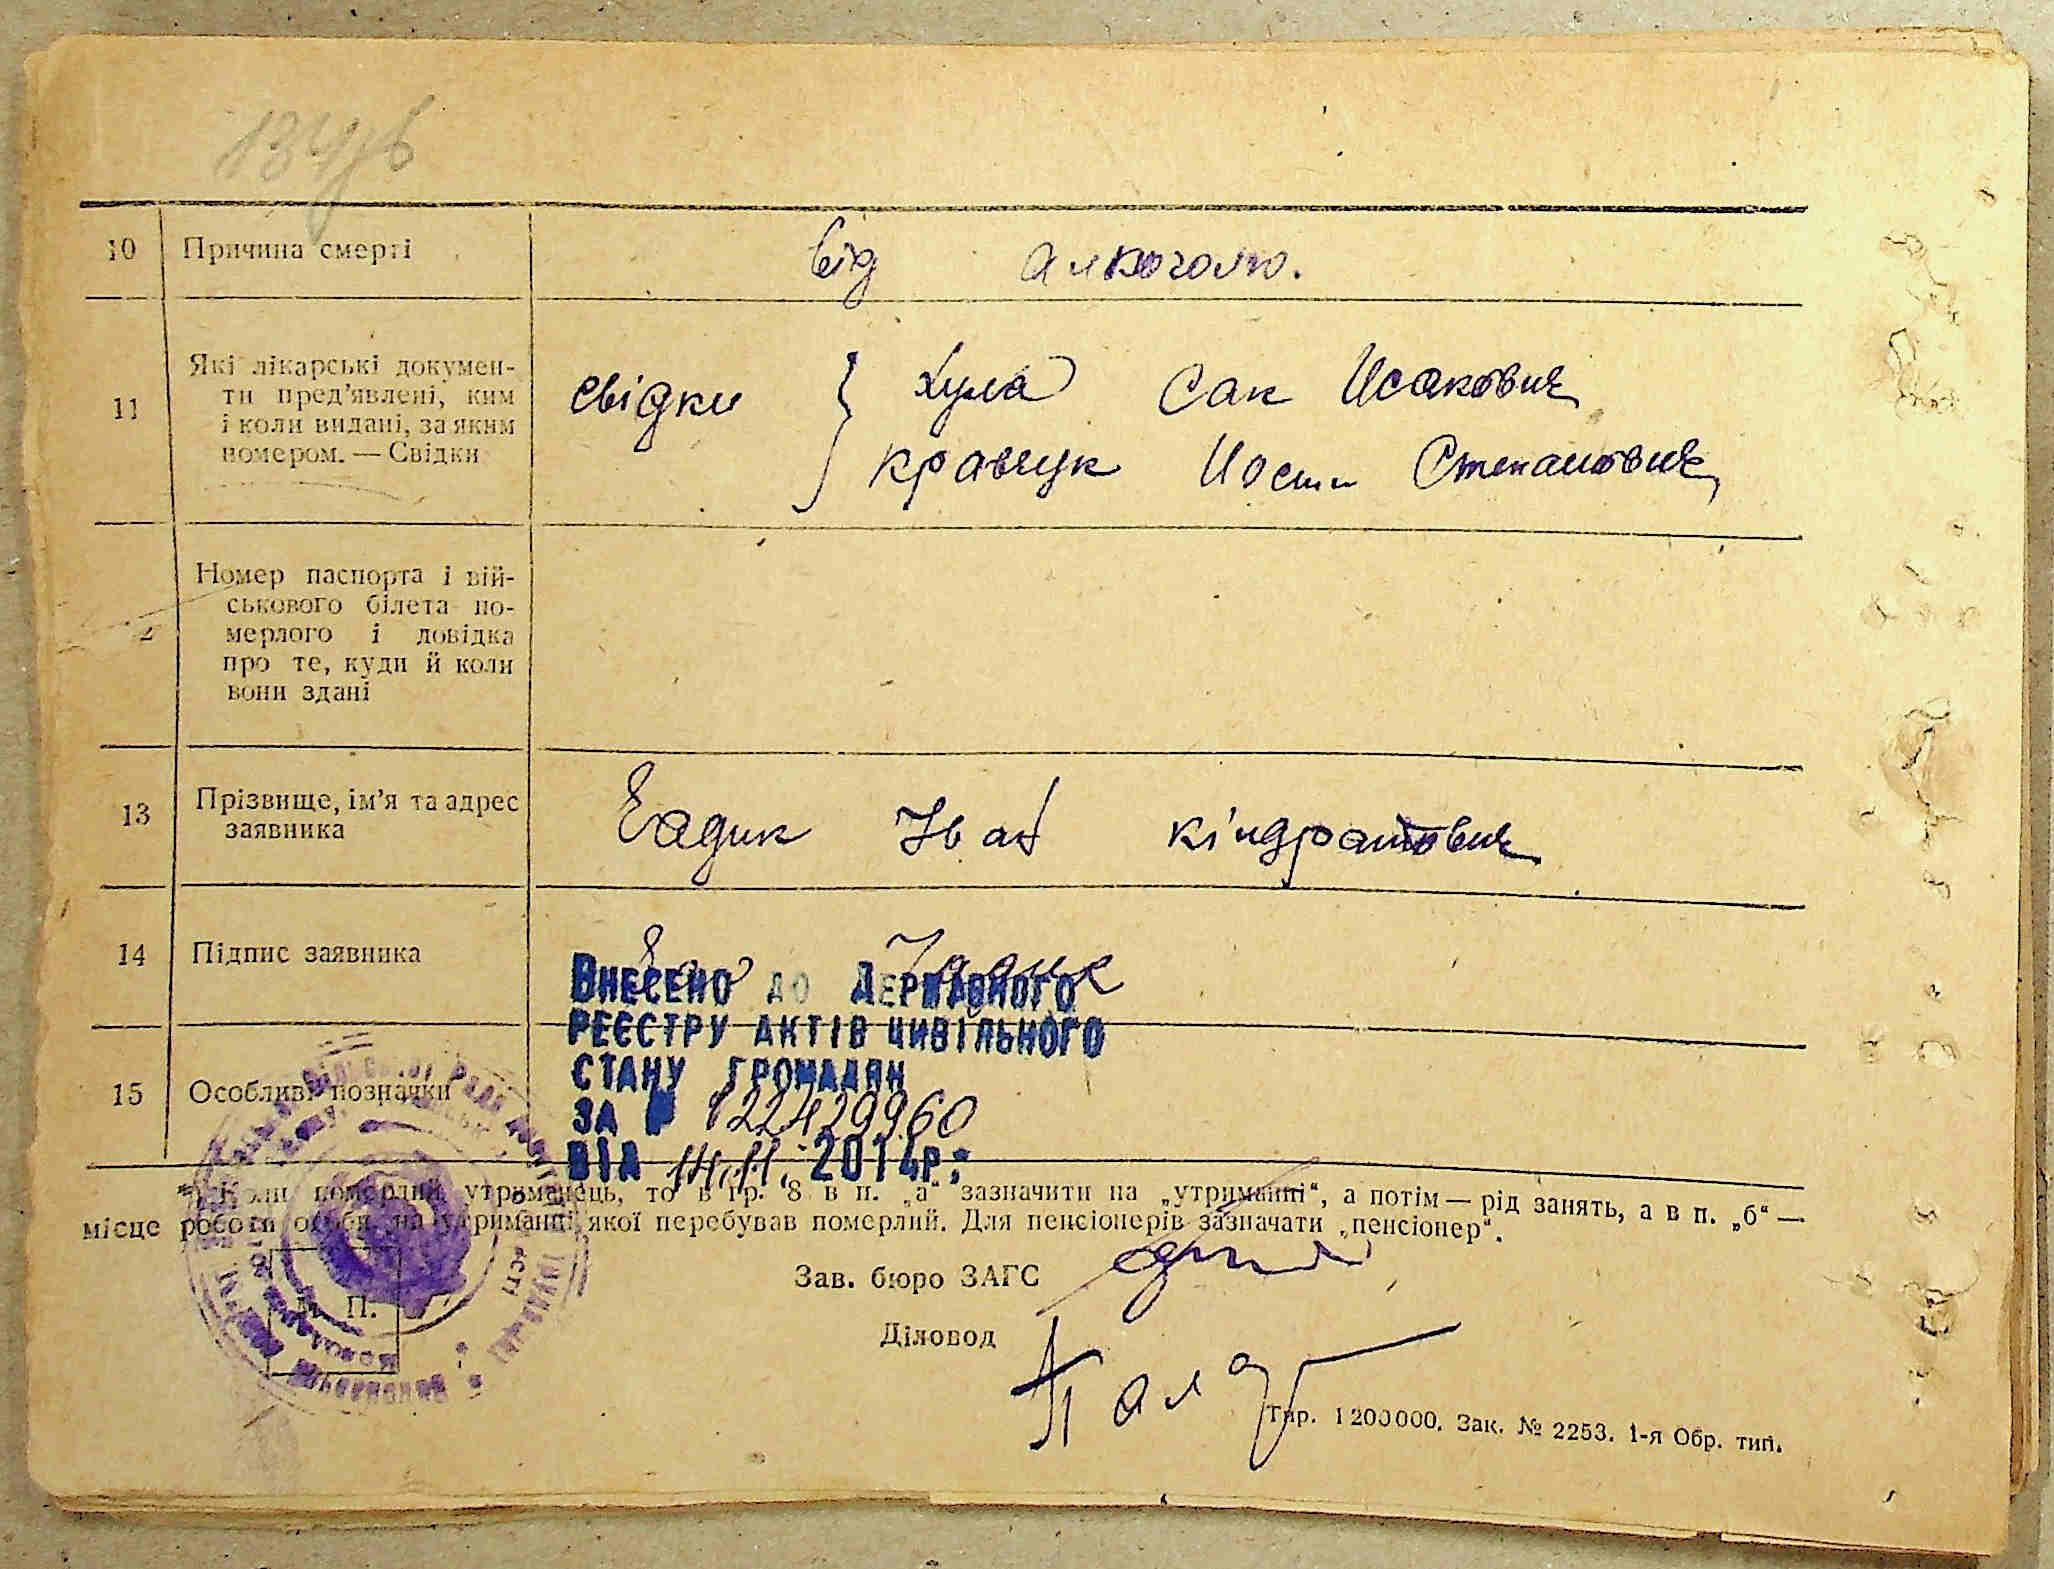 10 Причина смерті від алкоголю.
11 Які лікарські докумен-
ти пред'явлені, ким
і коли видані, за яким
номером. — Свідки
свідки { Хула Сак Исакович
Кравчук Иосип Степанович
2 Номер паспорта і вій-
ськового білета по-
мерлого і довідка
про те, куди й коли
вони здані
13 Прізвище, ім'я та адрес
заявника
Гадик Іван Кіндратович
14 Підпис заявника
Внесено до Державного
реєстру актів цивільного
15 Особливі позначки
стану громадян
за № 122429960
від 14.11.2014р.
*) Коли померлий утриманець, то в гр. 8 в п. „а“ зазначити на „утриманні“, а потім — рід занять, а в п. „б“ —
місце роботи особи, на утриманні якої перебував померлий. Для пенсіонерів зазначати „пенсіонер“.
Зав. бюро ЗАГС
М. П.
Діловод
Тир. 1200000. Зак. № 2253. 1-я Обр. тип.